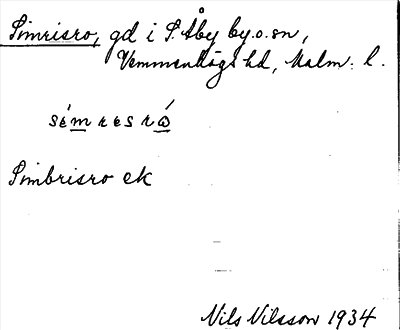 Simrisro, gd i S. Åby by o. sn,
Vemmenhögs hd, Malm. l.
sémresrȧ́
Simbrisro ek
Nils Nilsson 1934